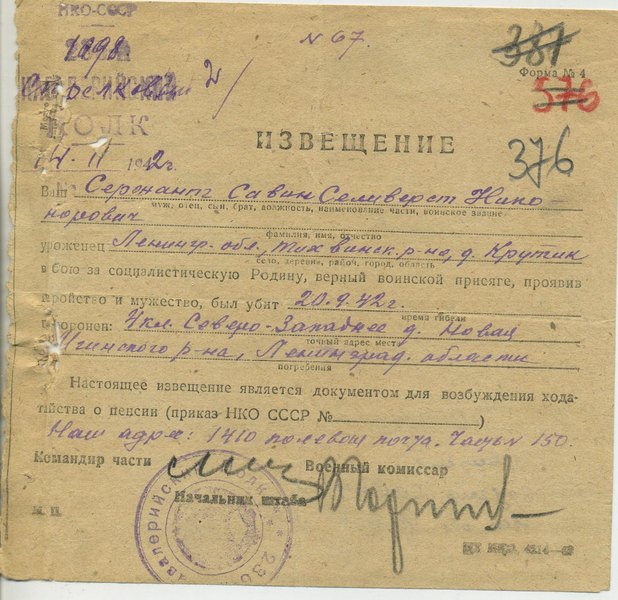 НКО-СССР
N 67.
381
1098
Форма № 4
Стрелковый
576
ПОЛК
ИЗВЕЩЕНИЕ
376
14. II 1942г.
Ваш Сержант Савин Селиверст Нико
муж, отец, сын, брат, должность, наименование части, воинское звание
норович
фамилия, имя, отчество
уроженец Ленингр. обл, Тихвинск. р-на, д. Крутик
село, деревня, район, город, область
в бою за социалистическую Родину, верный воинской присяге, проявив
геройство и мужество, был убит 20.9.42г.
время гибели
похоронен: 4 кл. Северо-Западнее д. Новая
точный адрес места
р-на, Ленинград. области
погребения
Настоящее извещение является документом для возбуждения хода-
тайства о пенсии (приказ НКО СССР № )
Наш адрес: 1410 полевая почта. Часть 150.
Командир части
Военный комиссар
Начальник штаба
М. П.
236